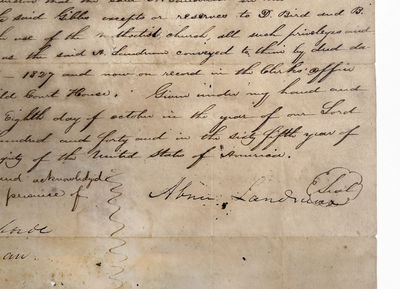 said Gibbs excepts or reserves to D. Bird and B.
use of the Methodist church, all such privileges and
as the said A. Landrum conveyed to them by deed da-
- 1837 and now on record in the Clerks office
Court House. Given under my hand and
Eighth day of october in the year of our Lord
hundred and forty and in the sixty fifth year of
of the United States of America.
and acknowledgd
presence of
Abner Landrum Seal